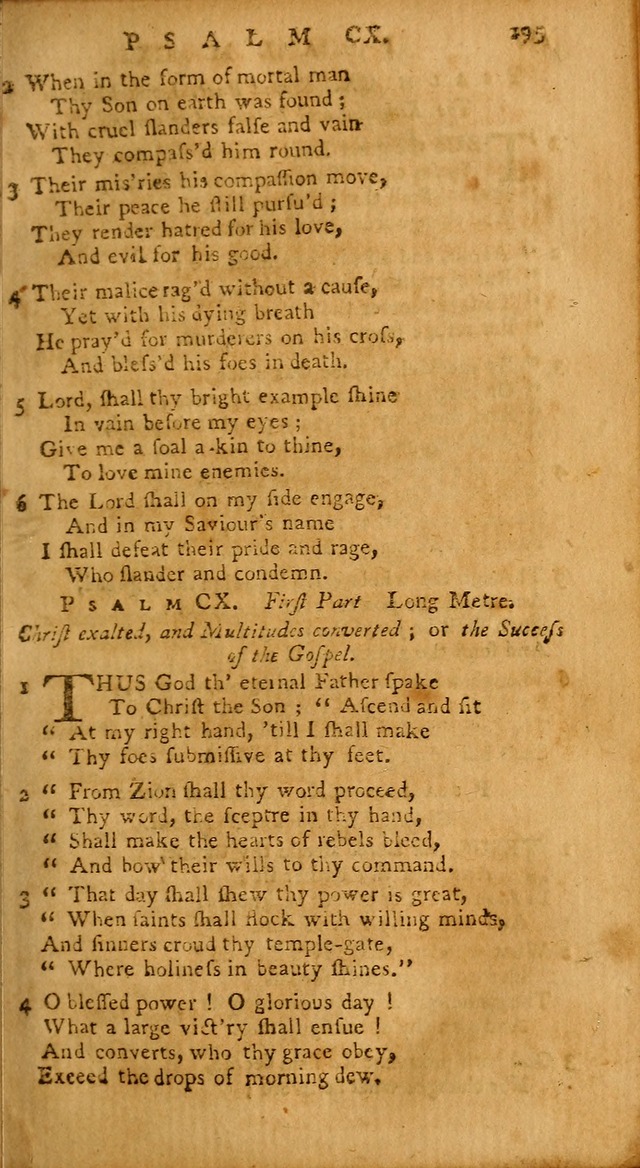 PSALM CX. 195
2 When in the form of mortal man
Thy Son on earth was found ;
With cruel ſlanders falſe and vain
They compaſs'd him round.
3 Their mis'ries his compaſſion move,
Their peace he ſtill purſu'd ;
They render hatred for his love,
And evil for his good.
4 Their malice rag'd without a cauſe,
Yet with his dying breath
He pray'd for murderers on his croſs,
And bleſs'd his foes in death.
5 Lord, ſhall thy bright example ſhine
In vain before my eyes ;
Give me a ſoal a-kin to thine,
To love mine enemies.
6 The Lord ſhall on my ſide engage,
And in my Saviour's name
I ſhall defeat their pride and rage,
Who ſlander and condemn.
PSALM CX. Firſt Part Long Metre.
Chriſt exalted, and Multitudes converted ; or the Succeſs
of the Goſpel.
1 THUS God th' eternal Father ſpake
To Chriſt the Son ; “ Aſcend and ſit
“ At my right hand, 'till I ſhall make
“ Thy foes ſubmiſſive at thy feet.
2 “ From Zion ſhall thy word proceed,
“ Thy word, the ſceptre in thy hand,
“ Shall make the hearts of rebels bleed,
“ And bow their wills to thy command.
3 “ That day ſhall ſhew thy power is great,
“ When ſaints ſhall flock with willing minds,
And ſinners croud thy temple-gate,
“ Where holineſs in beauty ſhines.”
4 O bleſſed power ! O glorious day !
What a large vict'ry ſhall enſue !
And converts, who thy grace obey,
Exceed the drops of morning dew.